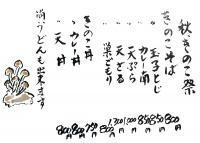 秋きのこ祭
きのこそば 800
〃 玉子とじ 850
〃 カレー南 850
〃 天ぷら
〃 天ざる
〃 巣ごもり
きのこ丼 750
〃 カレー丼 800
〃 天丼 800
尚、うどんも出来ます